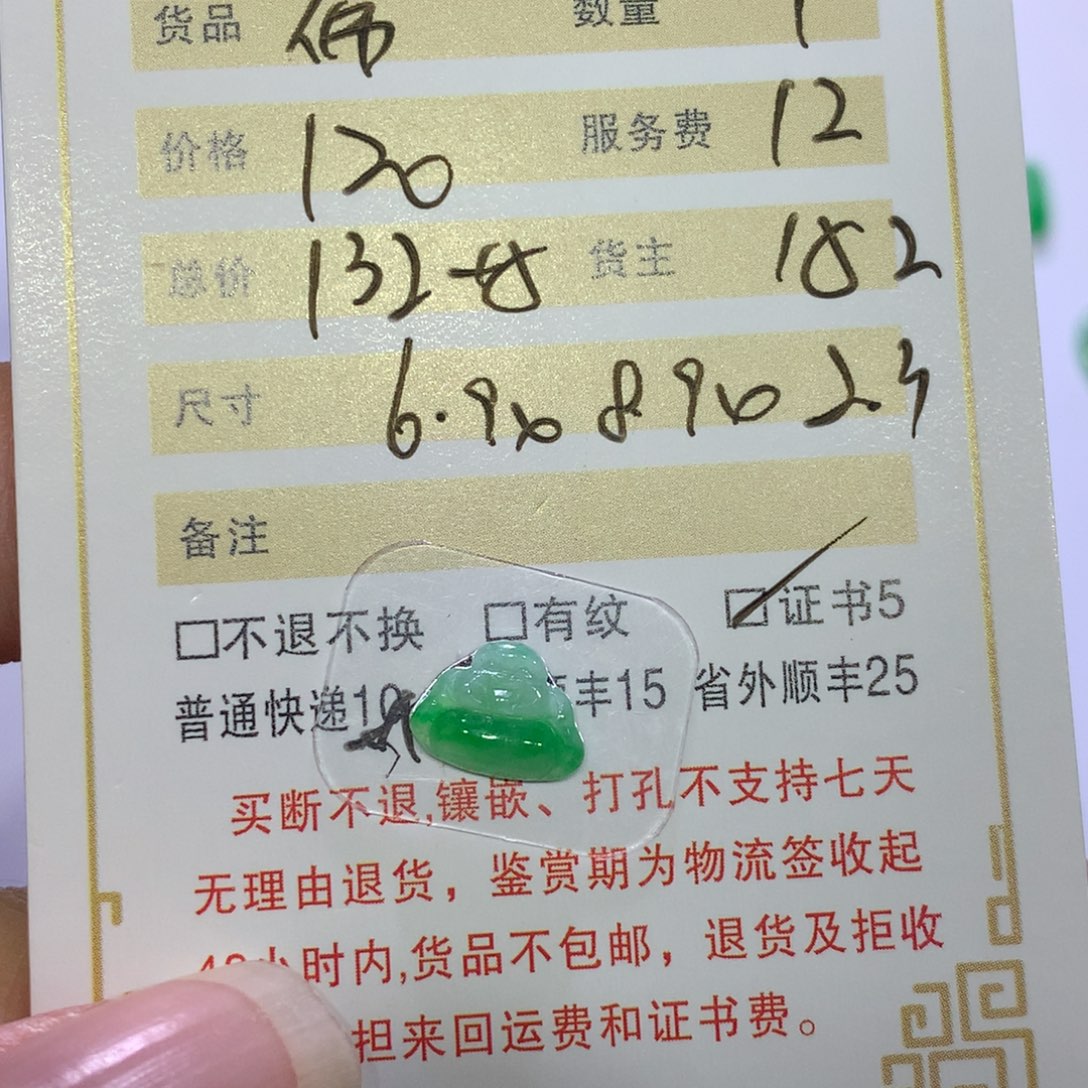 货品 佛 数量 1
价格 120 服务费 12
总价 132-5 货主 152
尺寸 6.9x8.9x2.3
备注
□不退不换 □有纹 ☑证书5
普通快递10 丰15 省外顺丰25
买断不退,镶嵌、打孔不支持七天
无理由退货，鉴赏期为物流签收起
小时内,货品不包邮，退货及拒收
担来回运费和证书费。